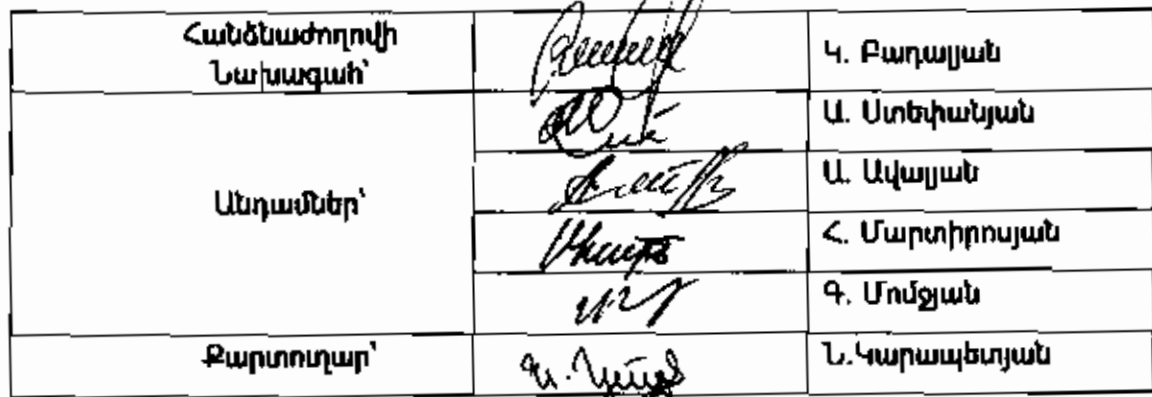 Հանձնաժողովի
Նախագահ՝
Կ. Բադալյան
Ա. Ստեփանյան
Անդամներ՝
Ա. Ավալյան
Հ. Մարտիրոսյան
Գ. Մոմջյան
Քարտուղար՝
Ն.Կարապետյան